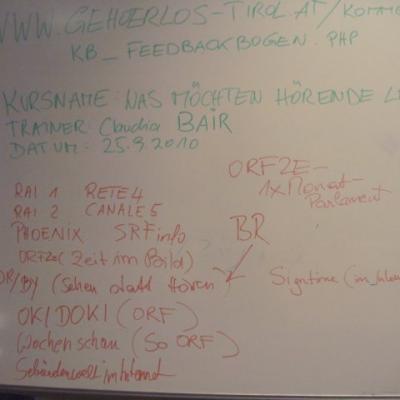 WWW.GEHOERLOS-TIROL.AT/KOMME
KB_FEEDBACKBOGEN.PHP
KURSNAME: WAS MÖCHTEN HÖRENDE
TRAINER: Claudia BAIR
DATUM: 25.9.2010
ORF2E -
1x Monat -
Parlament
RAI 1 RETE4
RAI 2 CANALE 5
PHOENIX SRFinfo
BR
ORF2e (Zeit im Bild)
DR/BY (Sehen statt Hören)
Signtime (im
OKIDOKI (ORF)
Wochenschau (So ORF)
Gebärdenwelt im Internet